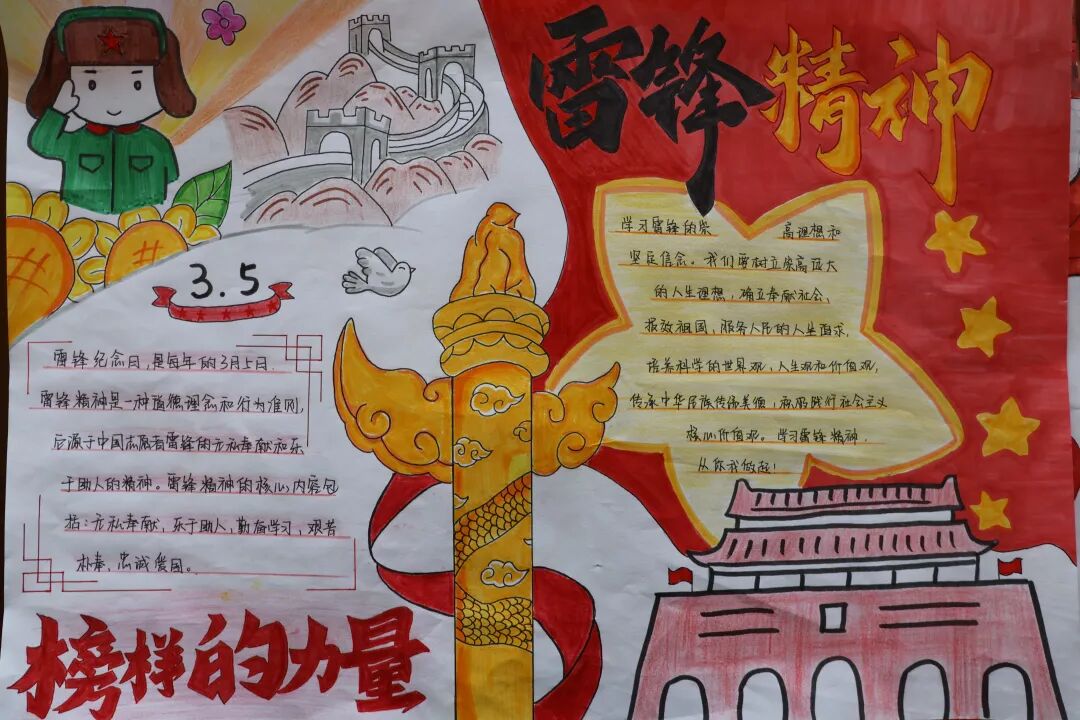 雷锋精神
3.5
雷锋纪念日,是每年的3月5日.
雷锋精神是一种道德理念和行为准则,
起源于中国志愿者雷锋的无私奉献和乐
于助人的精神。雷锋精神的核心内容包
括:无私奉献、乐于助人,勤奋学习,艰苦
朴素,忠诚爱国。
榜样的力量
学习雷锋的崇高理想和
坚定信念。我们要树立崇高远大
的人生理想,确立奉献社会、
报效祖国,服务人民的人生追求,
培养科学的世界观,人生观和价值观,
传承中华民族传统美德,积极践行社会主义
核心价值观。学习雷锋精神,
从你我做起!